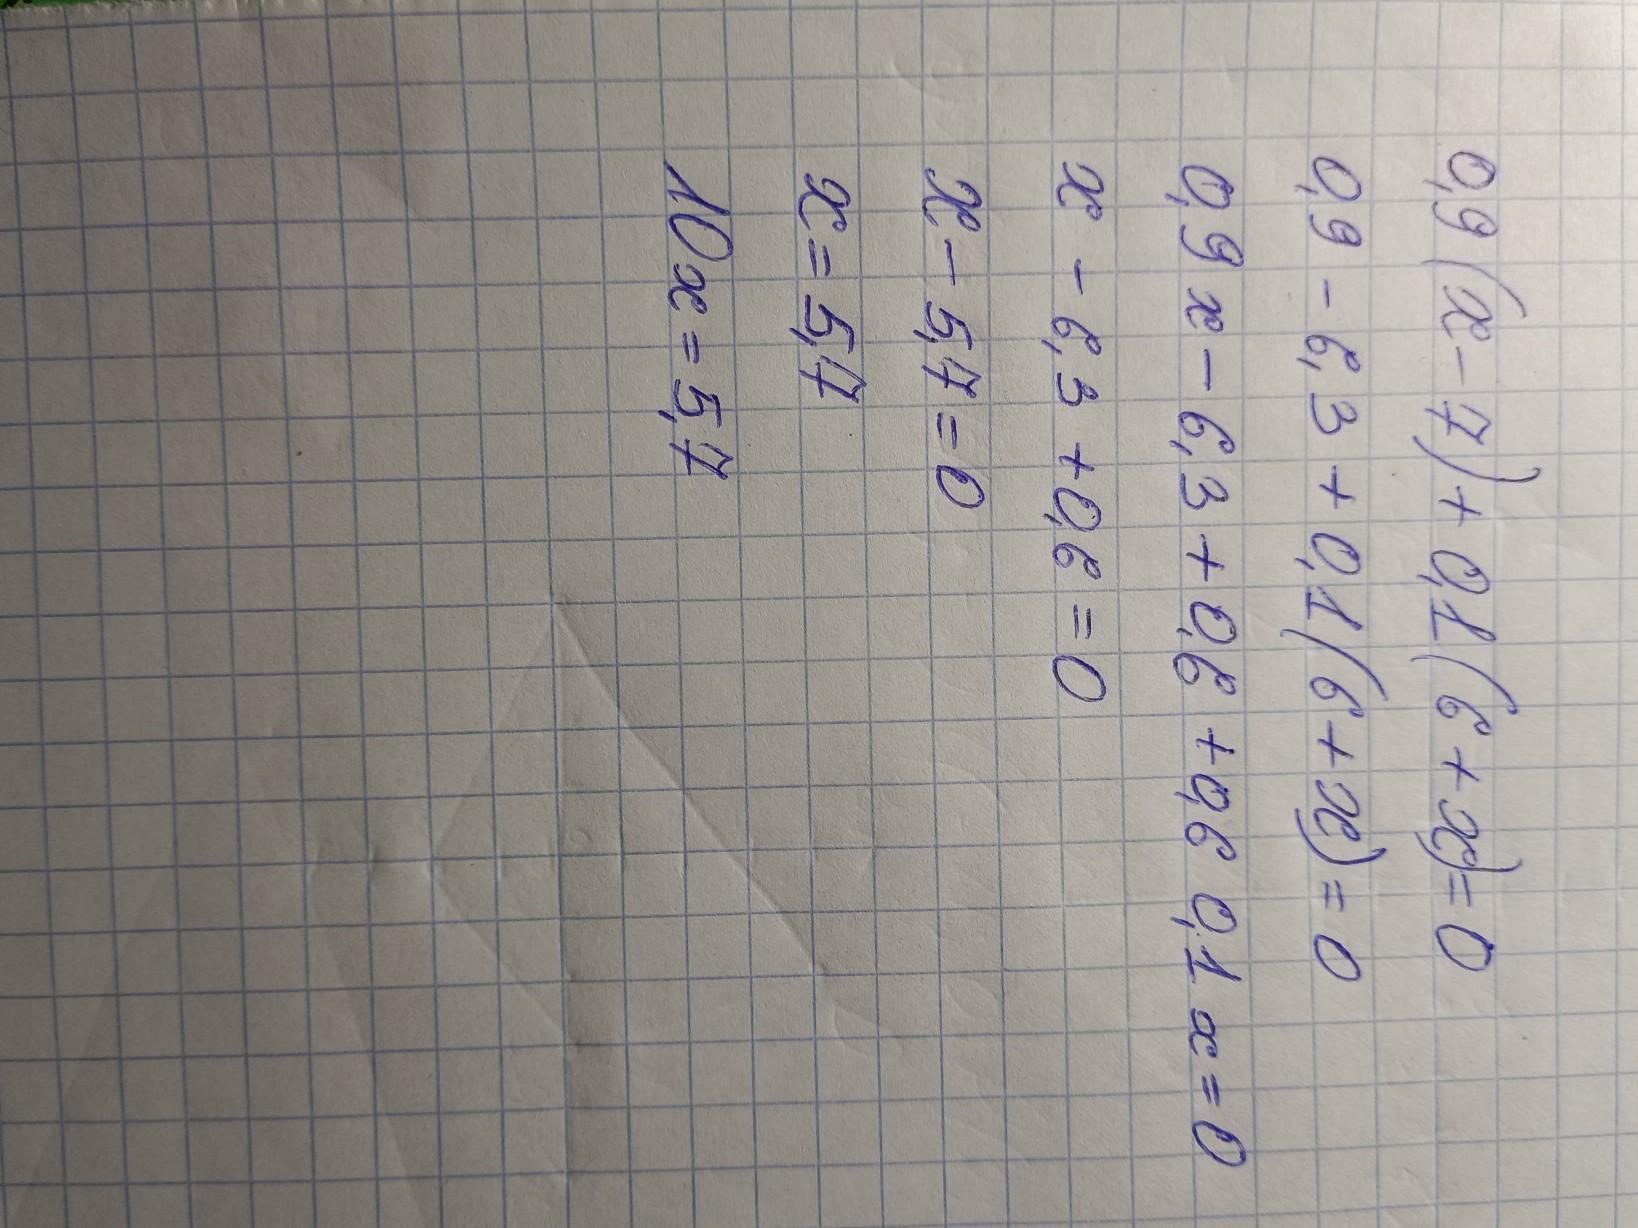 0,9(x-7)+0,1(6+x)=0
0,9-6,3+0,1(6+x)=0
0,9x-6,3+0,6+0,6 0,1x=0
x-6,3+0,6=0
x-5,7=0
x=5,7
10x=5,7